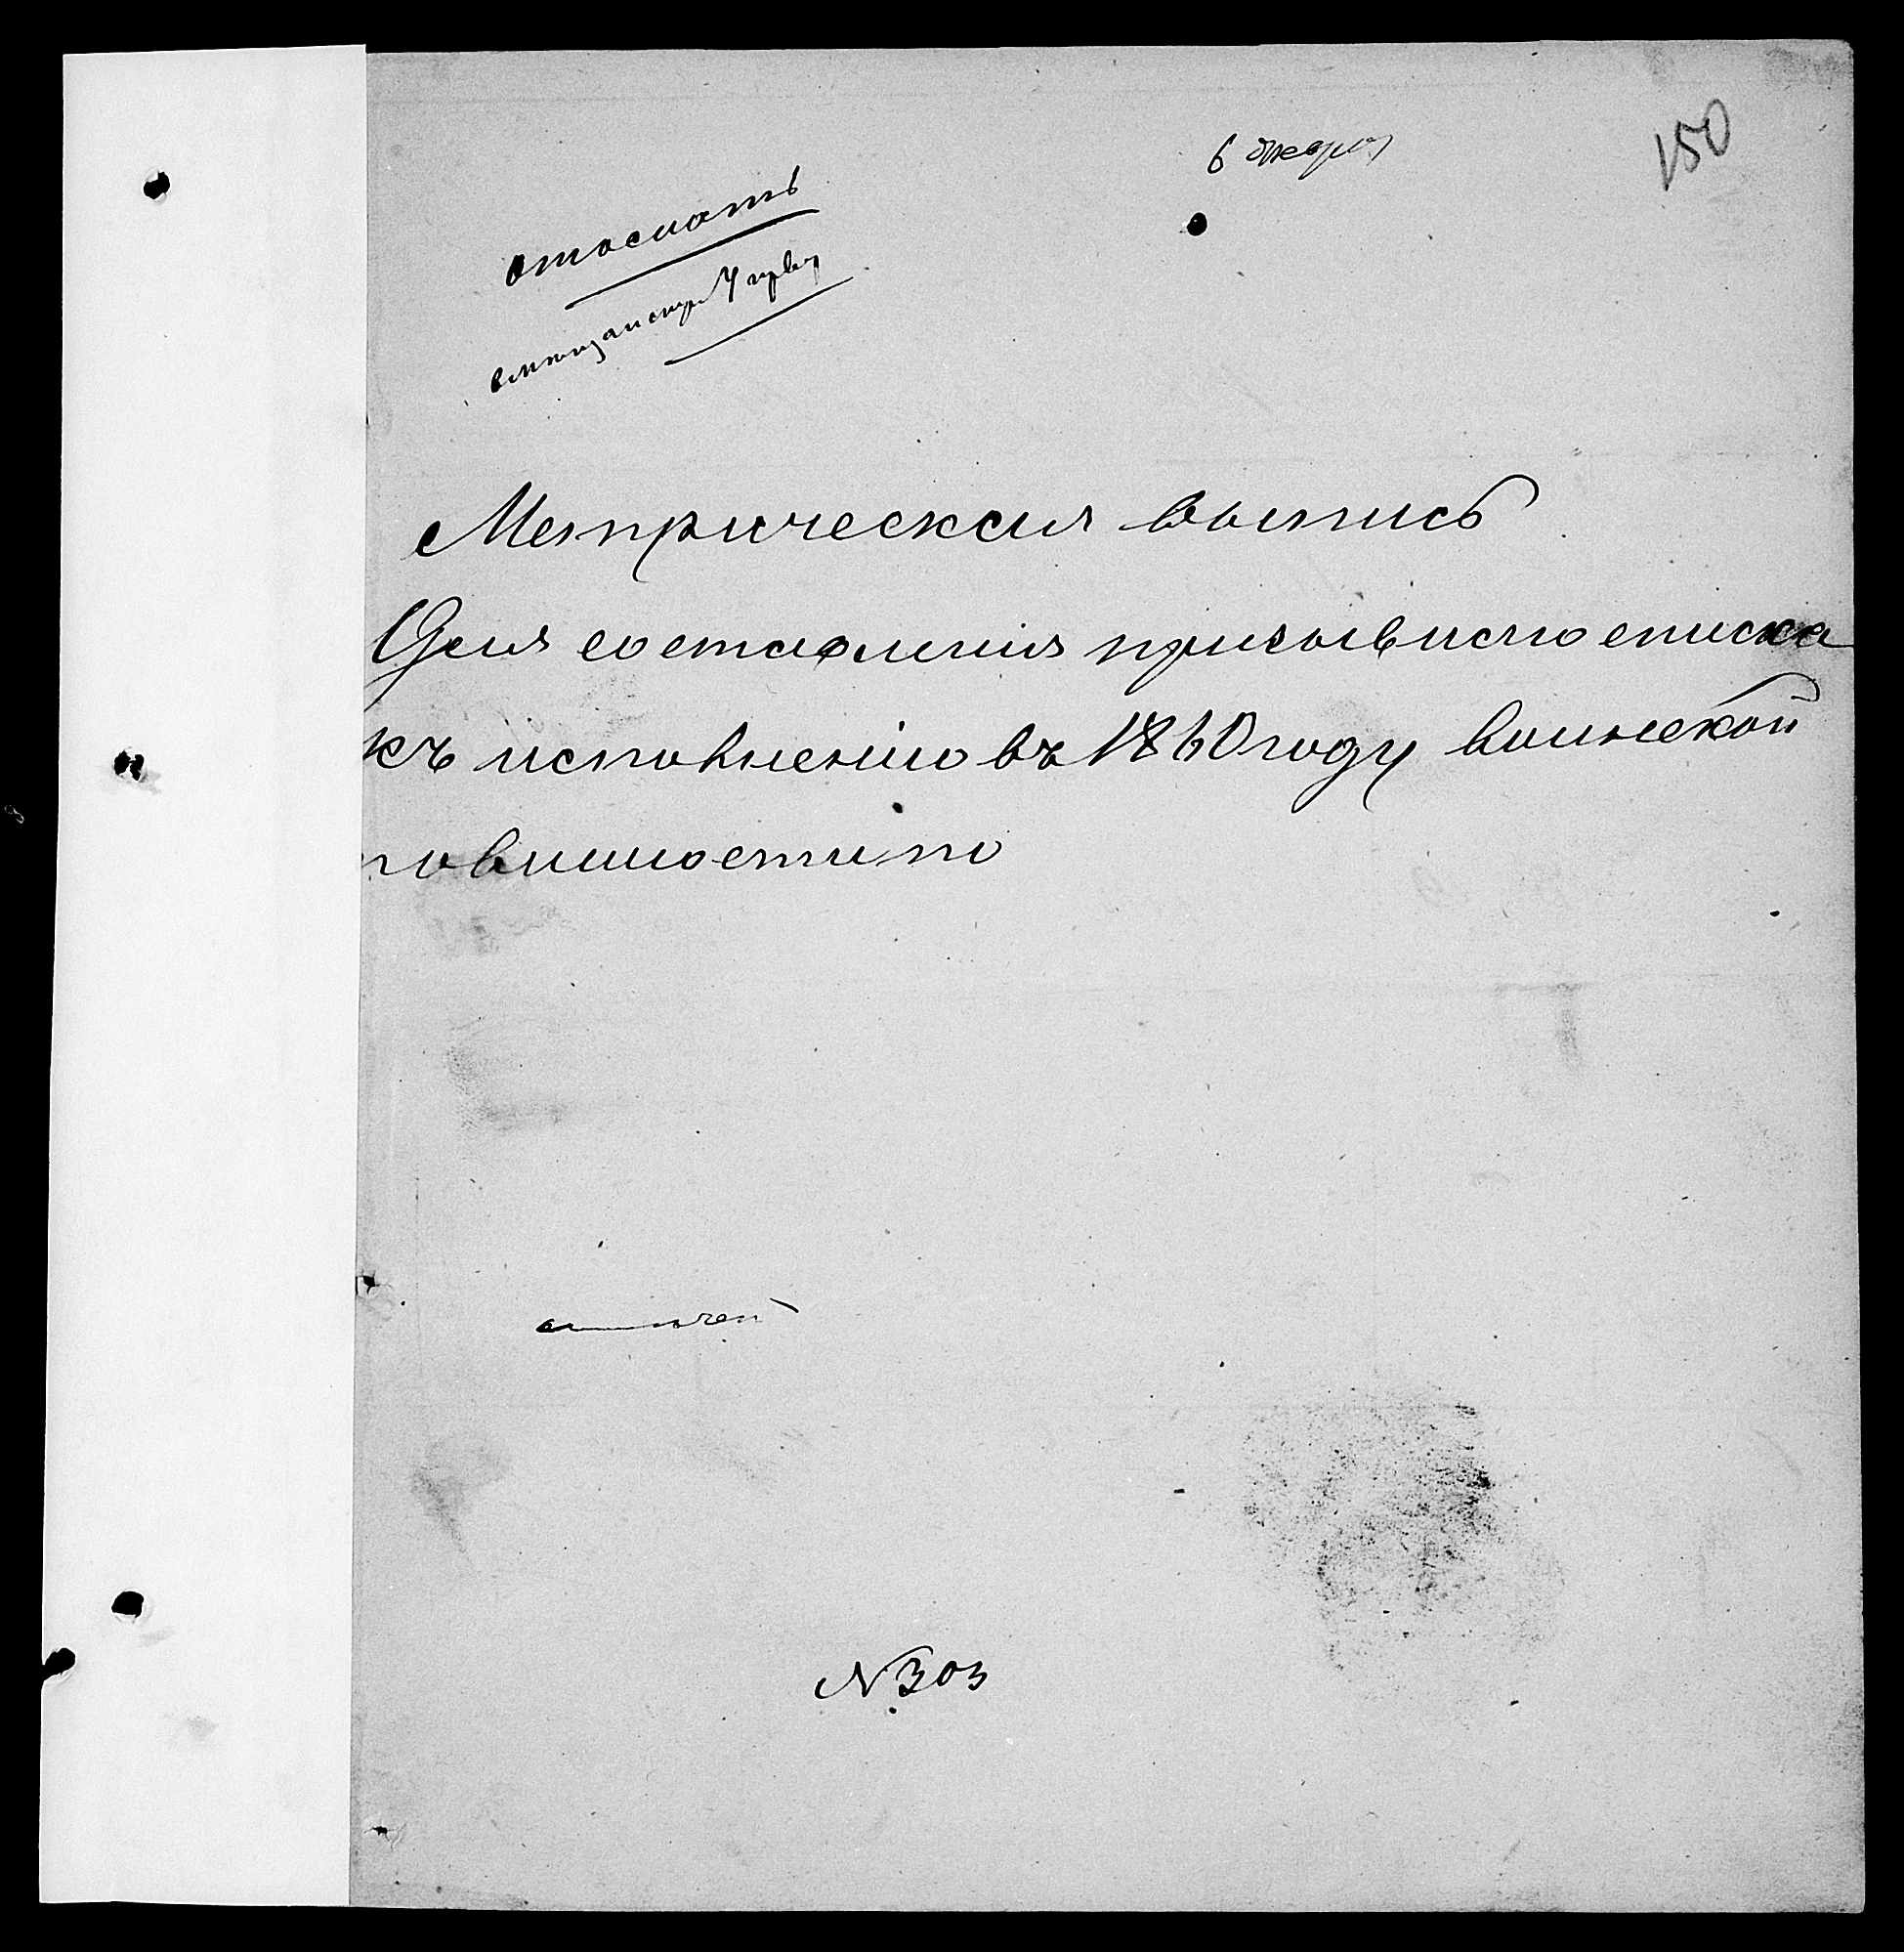 150
отослать
Метрическая выпись
Для составления призывнаго списка
къ исполненію въ 1860 году воинской
повинности по
N 303